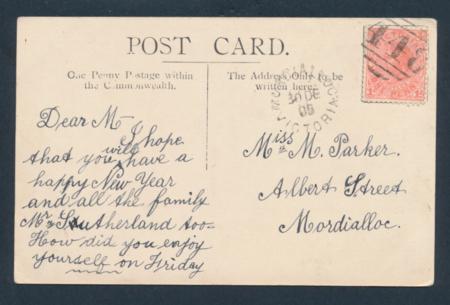 POST CARD.
One Penny Postage within
the Commonwealth.
The Address Only to be
written here.
MORDIALLOC
30 DE
05
VICTORIA
Dear M-
I hope
that you will have a
happy New Year
and all the family
Mr Southerland too-
How did you enjoy
yourself on Friday
Miss M. Parker.
Albert Street
Mordialloc.